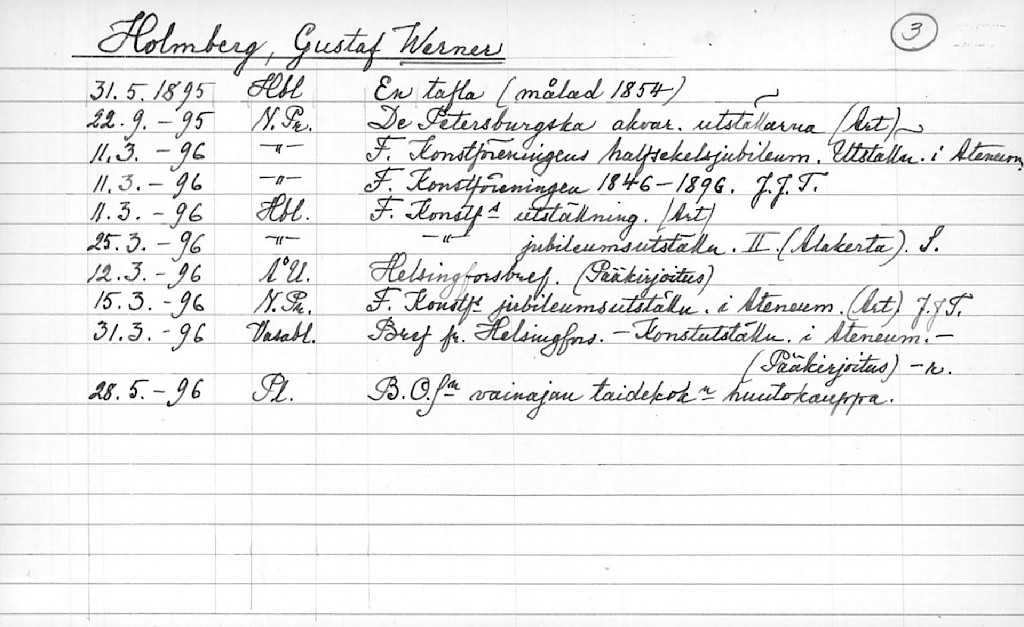 Holmberg, Gustaf Werner 3
31.5.1895 Hbl En tafla (målad 1854)
22.9.-95 N.Pr. De Petersburgska akvar. utställarna (Art)
11.3.-96 -"- F. Konstföreningens halfsekelsjubileum. Utställn. i Ateneum.
11.3.-96 -"- F. Konstföreningen 1846-1896. J.J.T.
11.3.-96 Hbl. F. Konstf:s utställning. (Art)
25.3.-96 -"- -"- jubileumsutställn. II. (Alakerta). S.
12.3.-96 Å.U. Helsingforsbref. (Pääkirjoitus)
15.3.-96 N.Pr. F. Konstf:s jubileumsutställn. i Ateneum. (Art) J.J.T.
31.3.-96 Vasabl. Bref fr. Helsingfors. - Konstutställn. i Ateneum. -
(Pääkirjoitus) -r.
28.5.-96 Pl. B.O. vainajan taidekok:n huutokauppa.